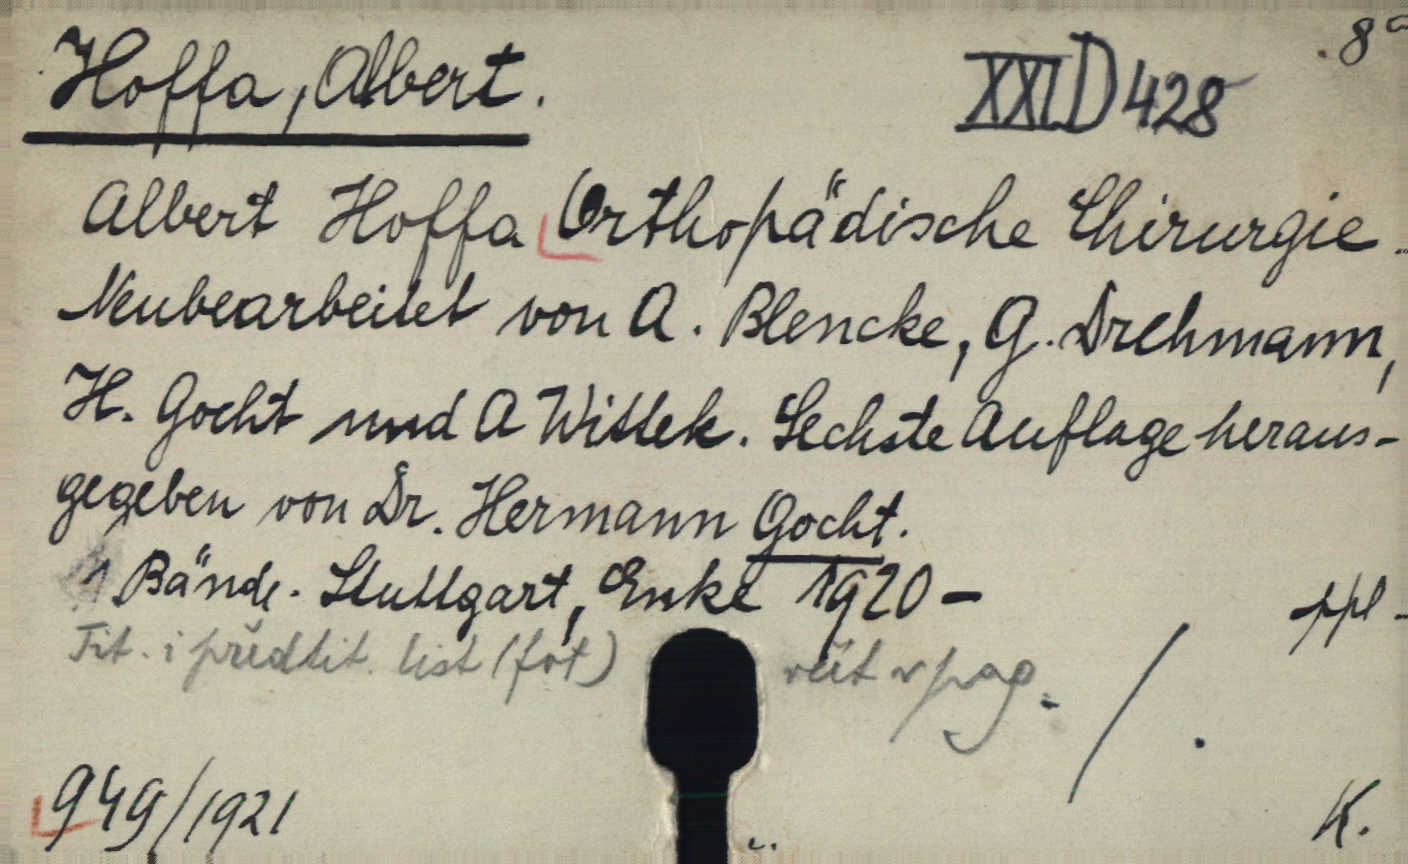 8°
Hoffa, Albert. XXI.D 428
Albert Hoffa Orthopädische Chirurgie
Neubearbeitet von A. Blencke, G. Drehmann,
H. Gocht und A Wittek. Sechste Auflage heraus-
gegeben von Dr. Hermann Gocht.
Bände. Stuttgart, Enke 1920 –
ppl -
Tit. i předtit. list (fot) v pag.
949/1921
K.